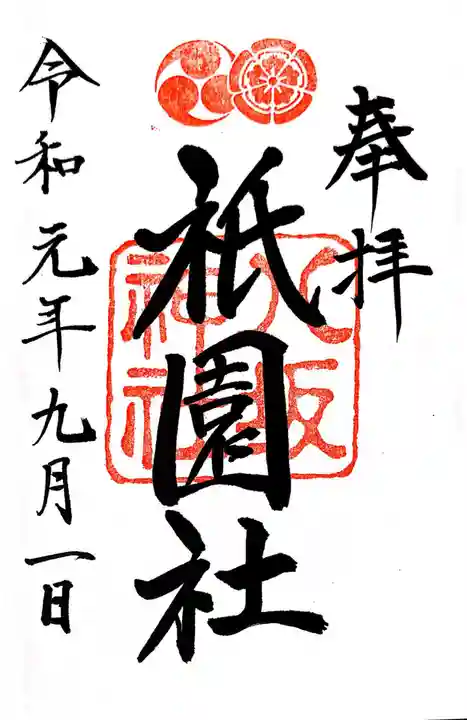 奉拝
八坂神社
祇園社
令和元年九月一日